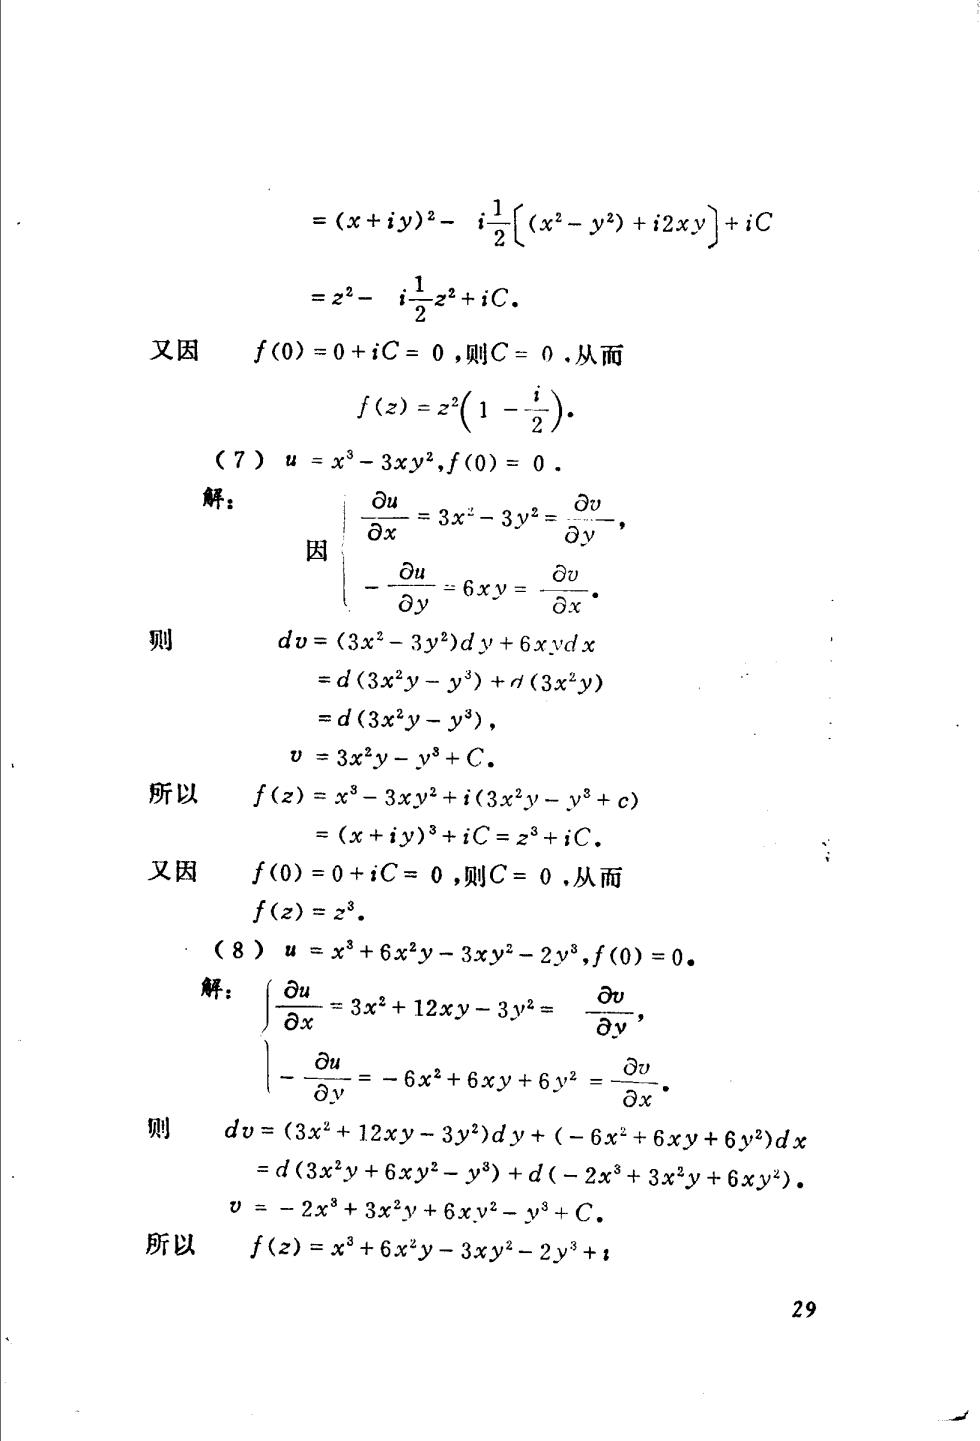 = (x+iy)² − i½[(x²−y²)+i2xy]+iC
= z² − i½z²+iC.
又因 f(0)=0+iC=0,则C=0.从而
f(z)=z²(1−i/2).
(7) u=x³−3xy²,f(0)=0.
解: ∂u/∂x=3x²−3y²=∂v/∂y,
因
−∂u/∂y=6xy=∂v/∂x.
则 dv=(3x²−3y²)dy+6xydx
=d(3x²y−y³)+d(3x²y)
=d(3x²y−y³),
v=3x²y−y³+C.
所以 f(z)=x³−3xy²+i(3x²y−y³+c)
=(x+iy)³+iC=z³+iC.
又因 f(0)=0+iC=0,则C=0.从而
f(z)=z³.
(8) u=x³+6x²y−3xy²−2y³,f(0)=0.
解: ∂u/∂x=3x²+12xy−3y²=∂v/∂y,
−∂u/∂y=−6x²+6xy+6y²=∂v/∂x.
则 dv=(3x²+12xy−3y²)dy+(−6x²+6xy+6y²)dx
=d(3x²y+6xy²−y³)+d(−2x³+3x²y+6xy²).
v=−2x³+3x²y+6xy²−y³+C.
所以 f(z)=x³+6x²y−3xy²−2y³+i
29